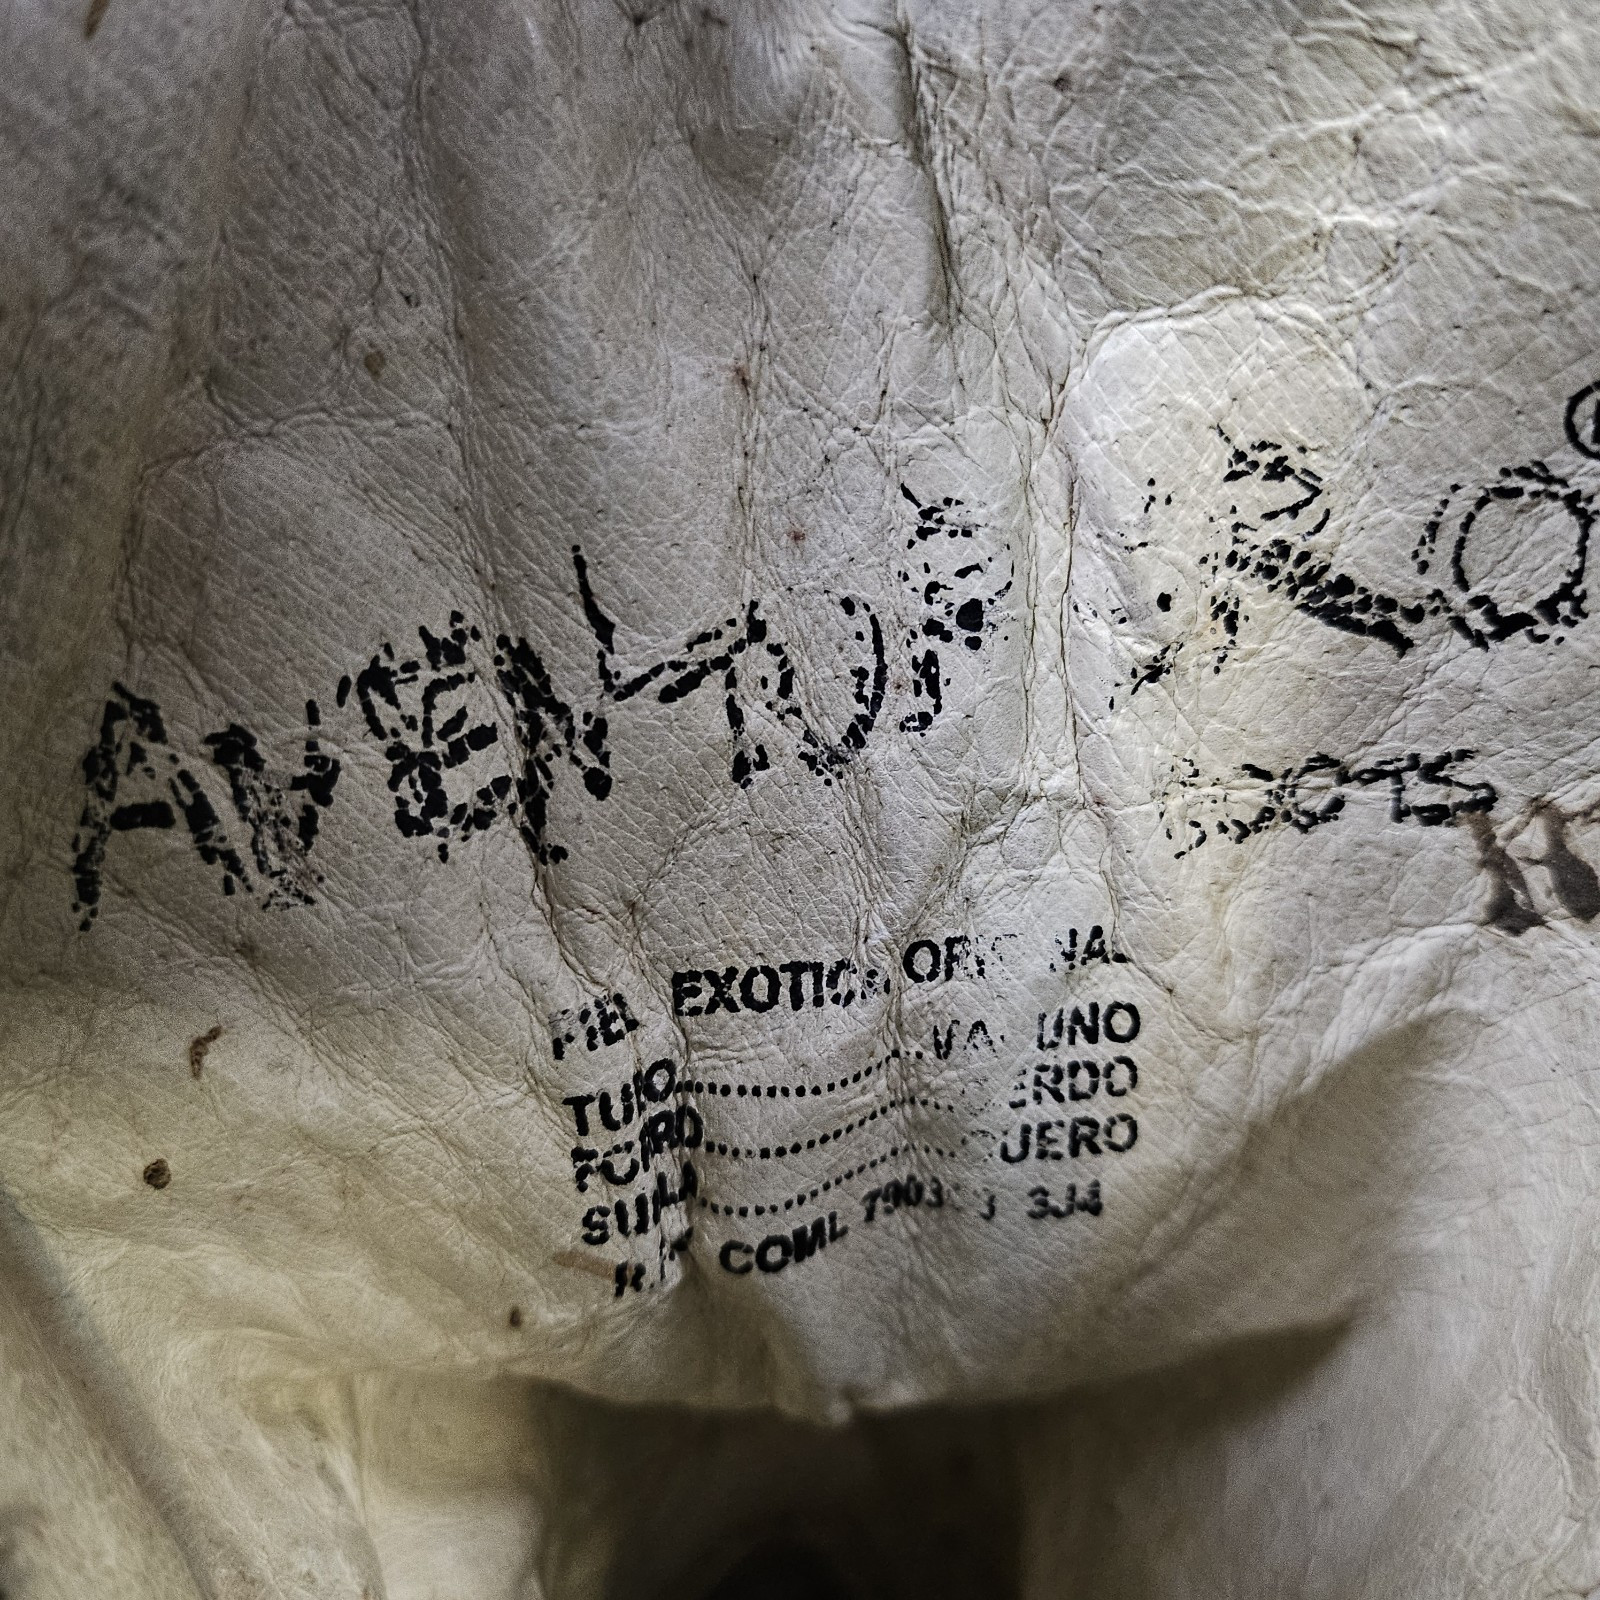 AVENTURERO®
BOOTS
PIEL EXOTICA ORIGINAL
TUBO..................VACUNO
FORRO..................CERDO
SUELA..................CUERO
COML